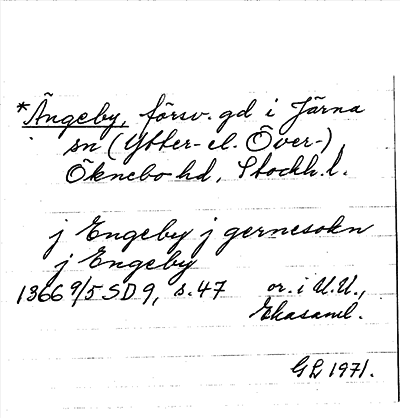 *Ängeby, försv. gd i Järna
sn (Ytter- el. Över-)
Öknebo hd, Stockh. l.
j Engeby j gernesokn
j Engeby
1366 9/5 SD 9, s. 47 or. i U.U.,
Ekasaml.
GL 1971.